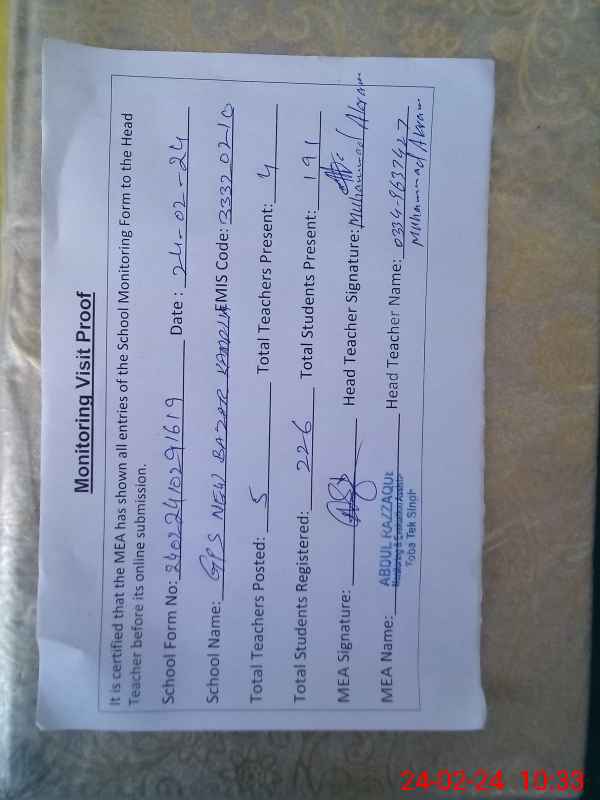 Monitoring Visit Proof
It is certified that the MEA has shown all entries of the School Monitoring Form to the Head
Teacher before its online submission.
School Form No: 24022410291619 Date : 24-02-24
School Name: GPS NEW BAZAR EMIS Code: 33320210
Total Teachers Posted: 5 Total Teachers Present: 4
Total Students Registered: 226 Total Students Present: 191
MEA Signature: Head Teacher Signature: Muhammad Akram
MEA Name: ABDUL RAZZAQUE Head Teacher Name: 0334-8637427
Monitoring & Evaluation Assistant Muhammad Akram
Toba Tek Singh
24-02-24 10:33